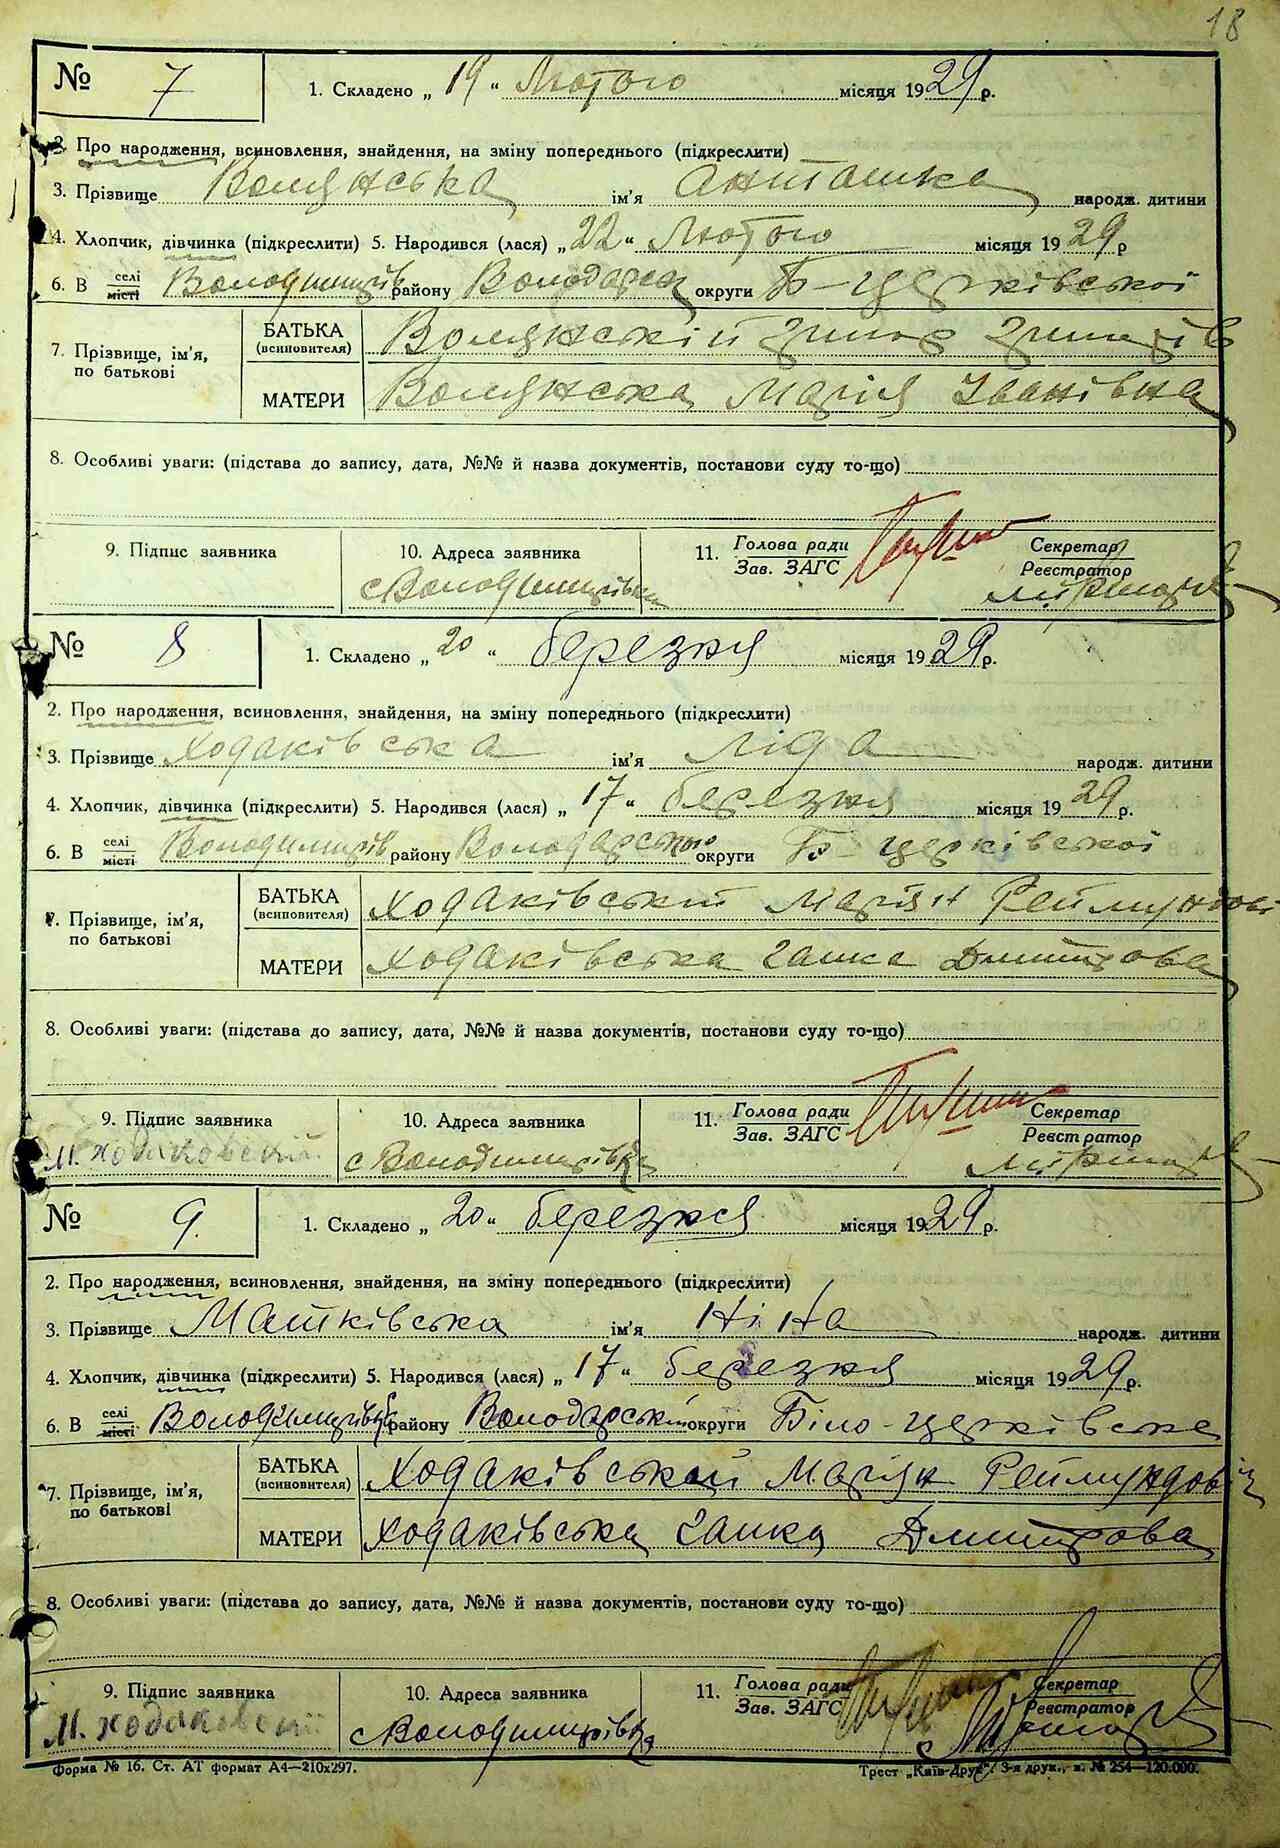 18
№ 7 1. Складено „19“ Лютого місяця 1929 р.
2. Про народження, всиновлення, знайдення, на зміну попереднього (підкреслити)
3. Прізвище Волянська ім'я Антошка народж. дитини
4. Хлопчик, дівчинка (підкреслити) 5. Народився (лася) „22“ Лютого місяця 1929 р
6. В селі місті Володимирів району Володарськ округи Б-церківської
7. Прізвище, ім'я, по батькові БАТЬКА (всиновителя) Волянській
МАТЕРИ Волянська Марія Іванівна
8. Особливі уваги: (підстава до запису, дата, №№ й назва документів, постанови суду то-що)
9. Підпис заявника 10. Адреса заявника 11. Голова ради Зав. ЗАГС Секретар Реєстратор
с Володимирівка
№ 8 1. Складено „20“ березня місяця 1929 р.
2. Про народження, всиновлення, знайдення, на зміну попереднього (підкреслити)
3. Прізвище Ходаківська ім'я Ліда народж. дитини
4. Хлопчик, дівчинка (підкреслити) 5. Народився (лася) „17“ березня місяця 1929 р.
6. В селі місті Володимирів району Володарського округи Б-церківської
7. Прізвище, ім'я, по батькові БАТЬКА (всиновителя) Ходаківський Маріян Реймундові
МАТЕРИ Ходаківська Ганка Дмитрова
8. Особливі уваги: (підстава до запису, дата, №№ й назва документів, постанови суду то-що)
9. Підпис заявника 10. Адреса заявника 11. Голова ради Зав. ЗАГС Секретар Реєстратор
М. Ходаковский с Володимирівка
№ 9. 1. Складено „20“ березня місяця 1929 р.
2. Про народження, всиновлення, знайдення, на зміну попереднього (підкреслити)
3. Прізвище Матківська ім'я Ніна народж. дитини
4. Хлопчик, дівчинка (підкреслити) 5. Народився (лася) „17“ березня місяця 1929 р.
6. В селі місті Володимирівка району Володарськ округи Біло-церківське
7. Прізвище, ім'я, по батькові БАТЬКА (всиновителя) Ходаківський Маріян Реймундовіч
МАТЕРИ Ходаківська Ганка Дмитрова
8. Особливі уваги: (підстава до запису, дата, №№ й назва документів, постанови суду то-що)
9. Підпис заявника 10. Адреса заявника 11. Голова ради Зав. ЗАГС Секретар Реєстратор
М. Ходаковский с Володимирівка
Форма № 16. Ст. АТ формат А4—210х297. Трест „Київ-Друк“, 3-я друк., з. № 254—120.000.